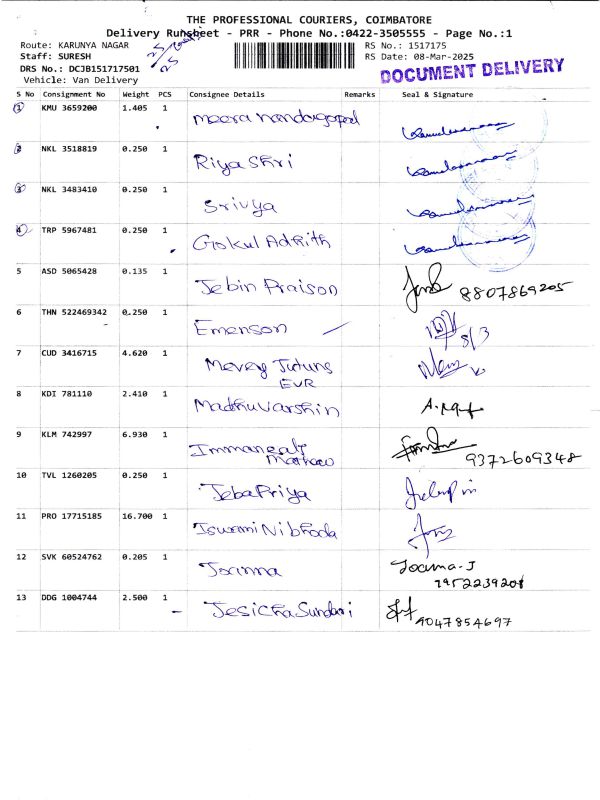 THE PROFESSIONAL COURIERS, COIMBATORE
Delivery Runsheet - PRR - Phone No.:0422-3505555 - Page No.:1
Route: KARUNYA NAGAR
RS No.: 1517175
Staff: SURESH
RS Date: 08-Mar-2025
DRS No.: DCJB151717501
DOCUMENT DELIVERY
Vehicle: Van Delivery
S No Consignment No Weight PCS Consignee Details Remarks Seal & Signature
1 KMU 3659200 1.405 1 Meera Nandagopal
2 NKL 3518819 0.250 1 Riya Shri
3 NKL 3483410 0.250 1 Srivya
4 TRP 5967481 0.250 1 Gokul Adhith
5 ASD 5065428 0.135 1 Jebin Praison 8807869205
6 THN 522469342 0.250 1 Emenson 8/3
7 CUD 3416715 4.620 1
EVR
8 KDI 781110 2.410 1 Madhuvarshin
9 KLM 742997 6.930 1 9372609348
10 TVL 1260205 0.250 1 JebaPriya
11 PRO 17715185 16.700 1
12 SVK 60524762 0.205 1 Joanna Joanna-J
7952239201
13 DDG 1004744 2.500 1 Jesicha Sundari 9047854697